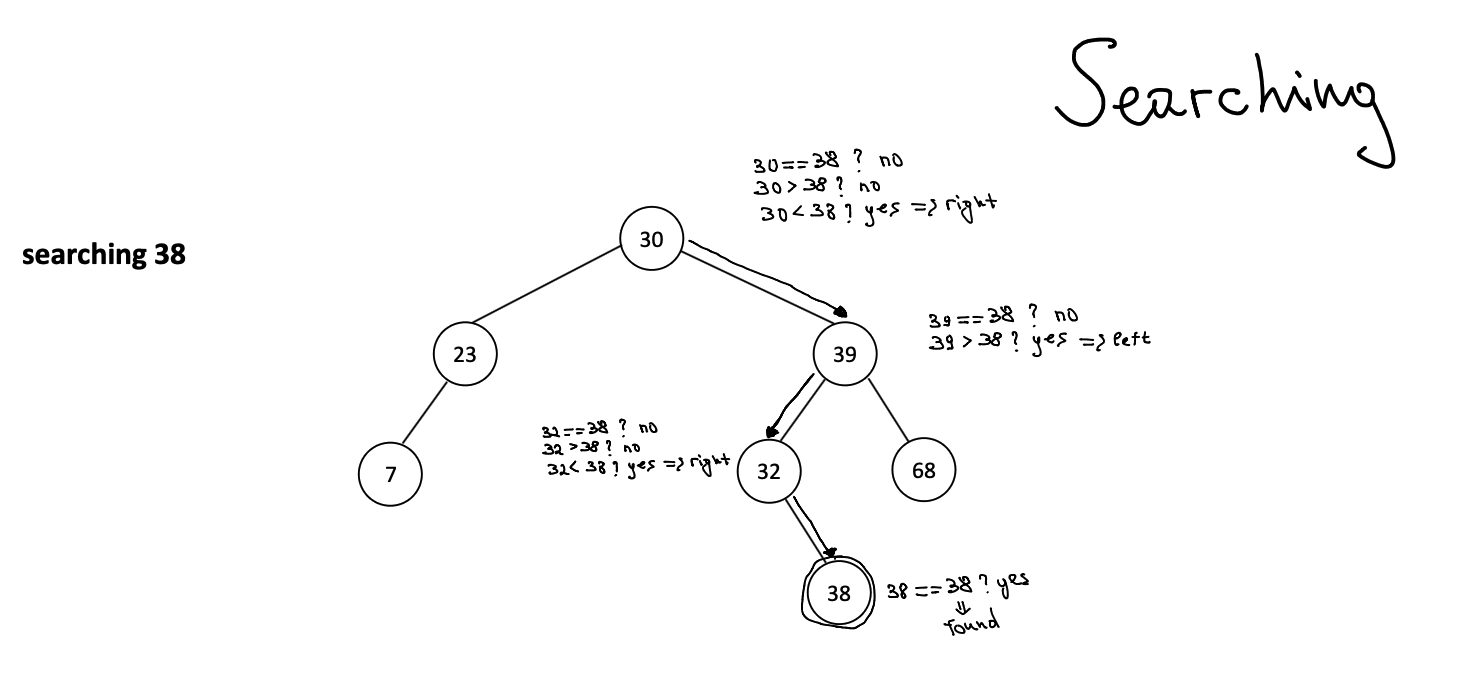 Searching
30==38 ? no
30>38 ? no
30<38 ? yes => right
searching 38
30
39==38 ? no
39>38 ? yes => left
23
39
32==38 ? no
32>38 ? no
32<38 ? yes => right
7
32
68
38
38==38 ? yes
⇓
found